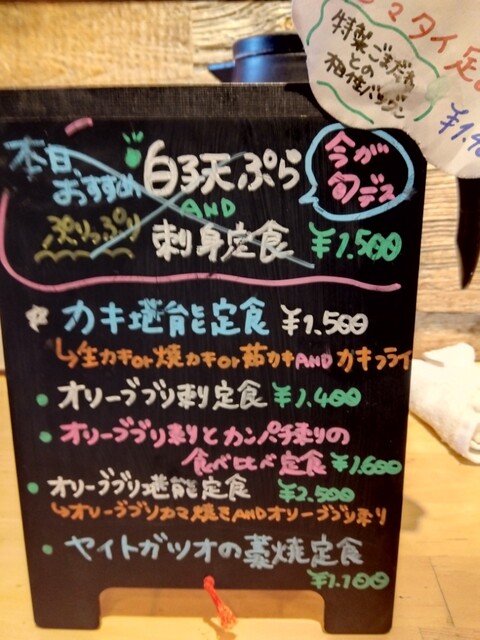 マタイ定
特製ごまだれ
との
相性バツグン
¥1.4
本日
おすすめ
白子天ぷら
今が
旬デス
AND
ぷりっぷり
刺身定食 ¥1.500
カキ堪能定食 ¥1.500
↳生カキor焼カキor茹カキANDカキフライ
オリーブブリ刺定食 ¥1.400
オリーブブリ刺りとカンパチ刺りの
食べ比べ定食 ¥1.600
オリーブブリ堪能定食 ¥2.500
↳オリーブブリカマ焼きANDオリーブブリ刺り
ヤイトガツオの藁焼定食
¥1.100